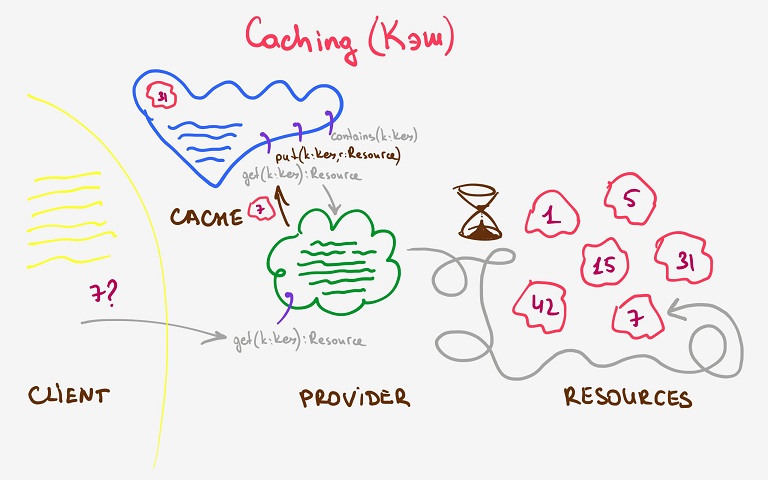 Caching (Кэш)
31
contains(k:Key)
put(k:Key,r:Resource)
get(k:Key):Resource
CACHE 7
1
5
15
31
42
7
7?
get(k:Key):Resource
CLIENT
PROVIDER
RESOURCES